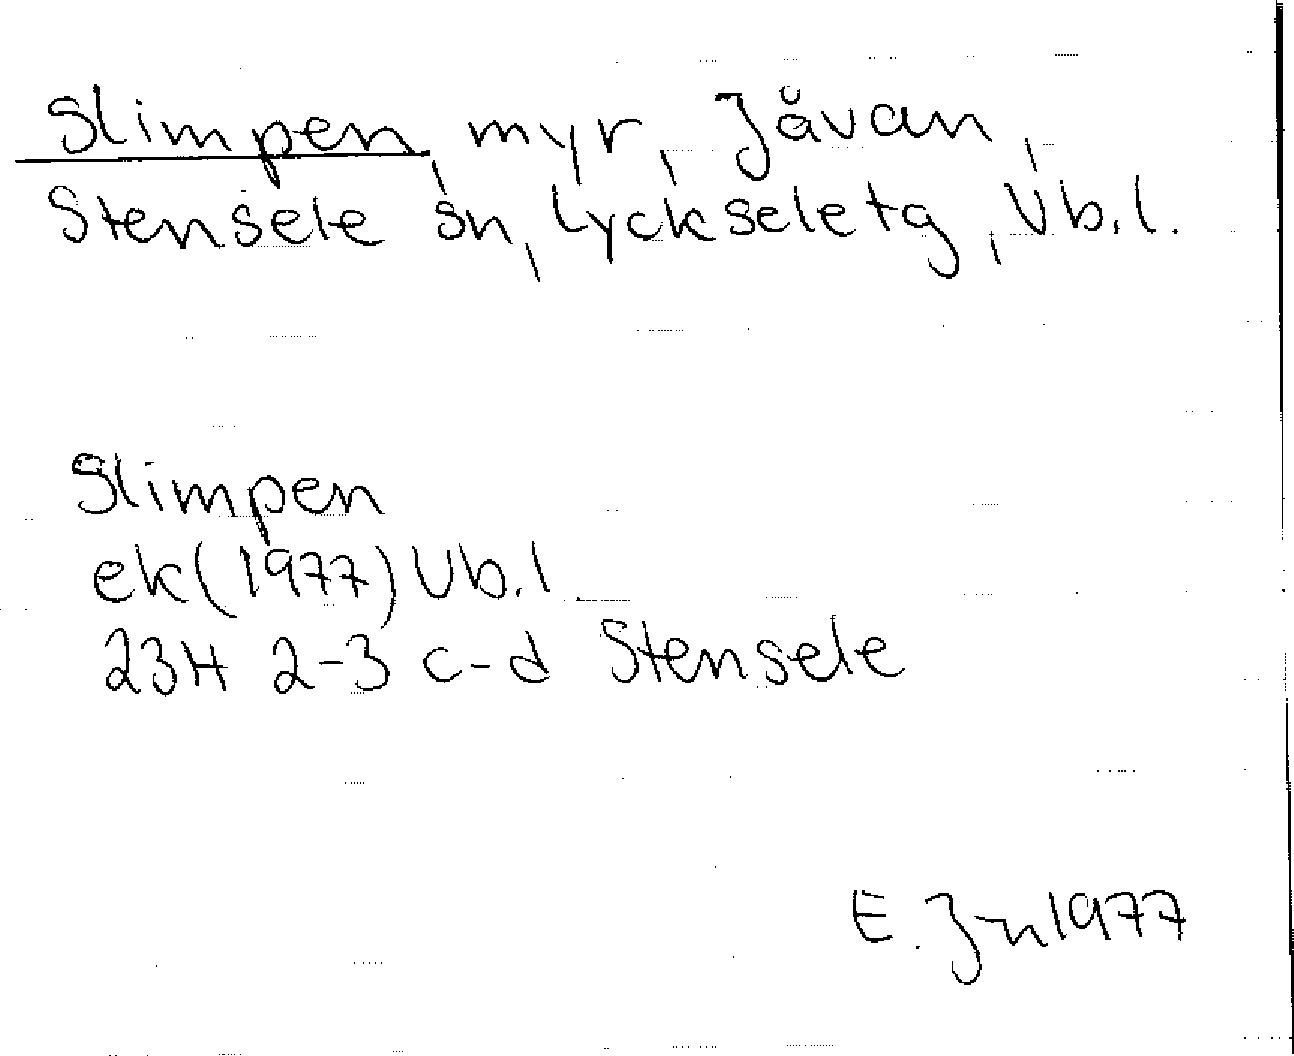 Slimpen, myr, Jåvan,
Stensele sn, Lyckseletg, Vb.l.
Slimpen
ek(1977) Vb.l
23H 2-3 c-d Stensele
E. 1977